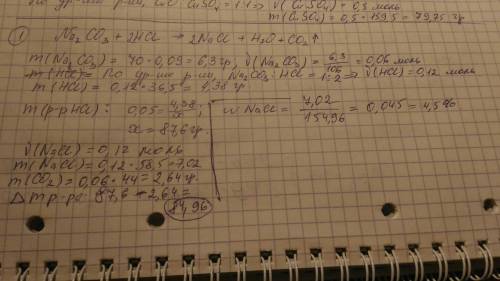 По ур-нию р-ии, CuSO₄ = 1:1 ⇒ ν(CuSO₄) = 0,5 моль
m(CuSO₄) = 0,5 · 159,5 = 79,75 гр
① Na₂CO₃ + 2HCl → 2NaCl + H₂O + CO₂↑
m(Na₂CO₃) = 70 · 0,09 = 6,3 гр, ν(Na₂CO₃) = 6,3/106 = 0,06 моль
m(HCl) = По ур-ию р-ии, Na₂CO₃ : HCl = 1:2 ⇒ ν(HCl) = 0,12 моль
m(HCl) = 0,12 · 36,5 = 4,38 гр
m(р-рHCl) : 0,05 = 4,38/x ;
x = 87,6 гр
ν(NaCl) = 0,12 моль
m(NaCl) = 0,12 · 58,5 = 7,02
m(CO₂) = 0,06 · 44 = 2,64 гр.
Δ m р-ра: 87,6 - 2,64 =
84,96
w NaCl = 7,02/154,96 = 0,045 = 4,5%